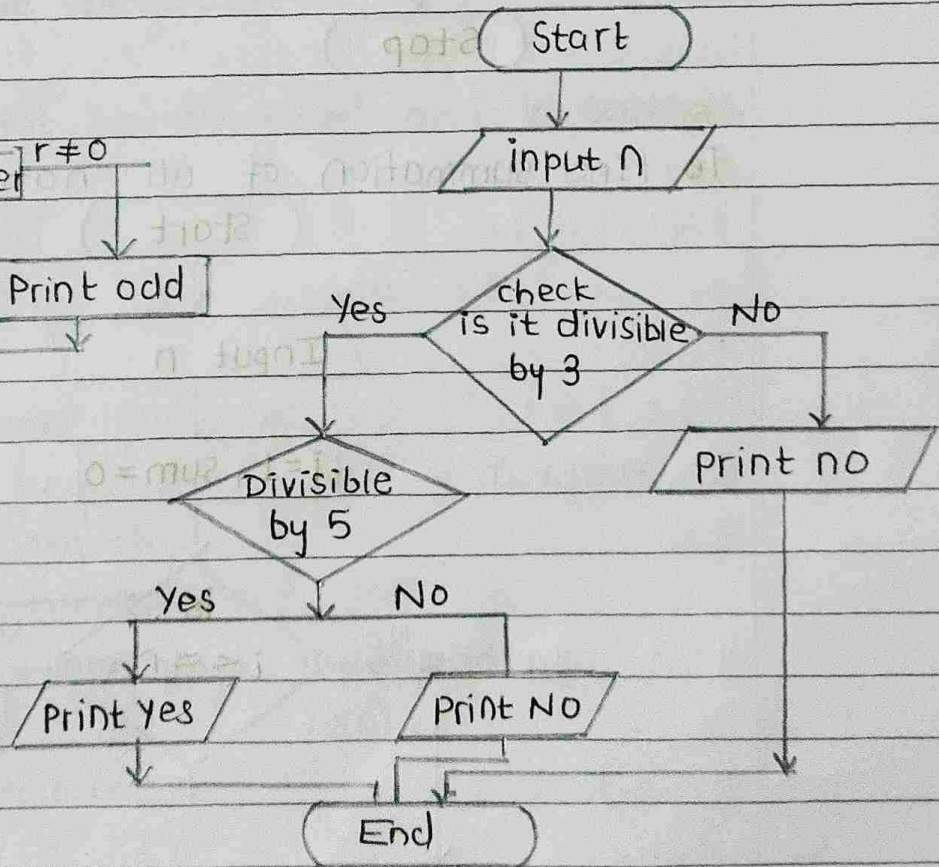 Start
input n
r ≠ 0
er
Print odd
check
is it divisible
by 3
Yes
No
Divisible
by 5
print no
Yes
No
Print yes
print NO
End